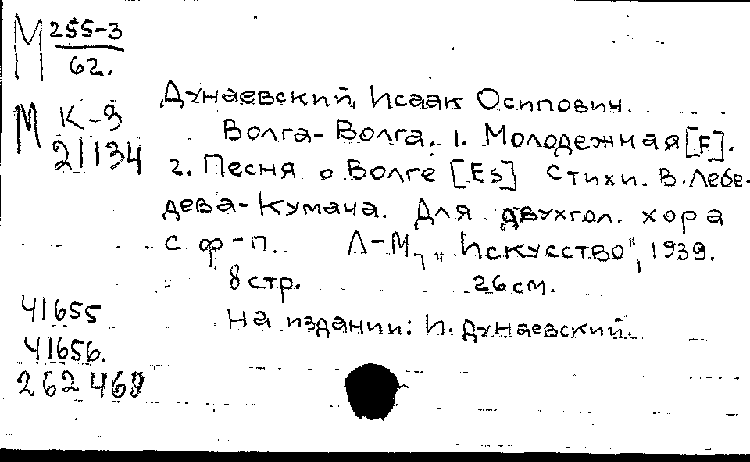 М 255-3
62.
М К-3
21134
Дунаевский, Исаак Осипович.
Волга-Волга. 1. Молодежная [F].
2. Песня о Волге [Es] Стихи. В. Лебе-
дева-Кумача. Для двухгол. хора
с ф-п. Л-М, „Искусство", 1939.
8 стр. 26 см.
На издании: И. Дунаевский.
41655
41656.
262468